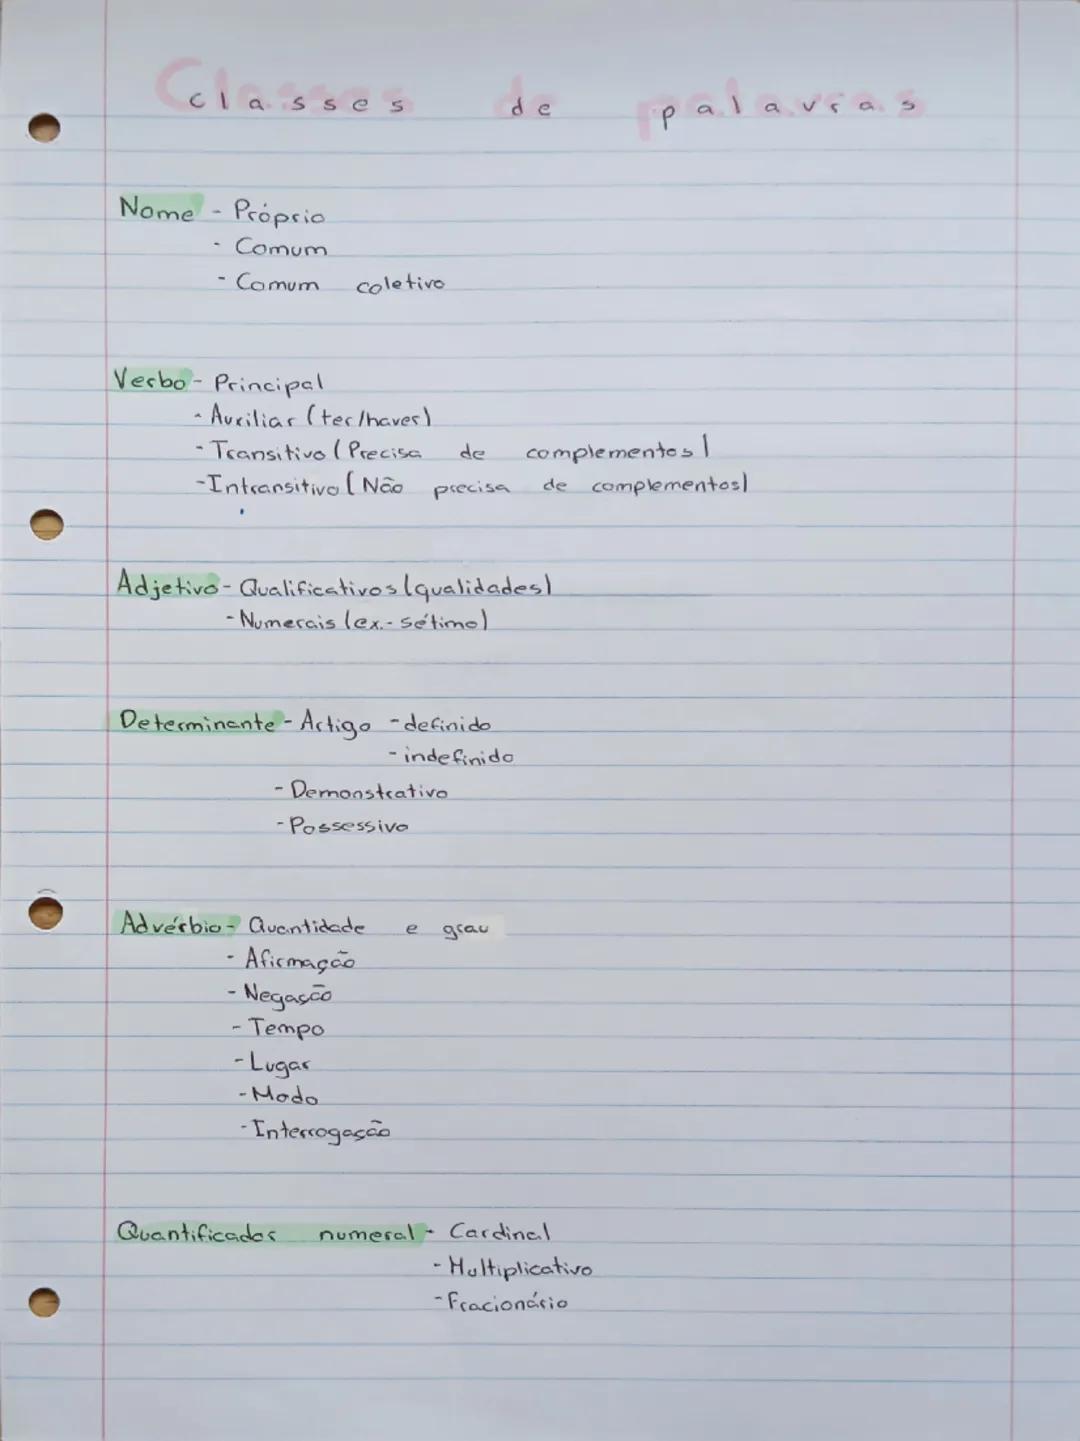 Classes de palavras
Nome - Próprio
- Comum
- Comum coletivo
Verbo - Principal
- Auxiliar (ter/haver)
- Transitivo (Precisa de complementos)
- Intransitivo (Não precisa de complementos)
Adjetivo - Qualificativos (qualidades)
- Numerais (ex.- sétimo)
Determinante - Artigo - definido
- indefinido
- Demonstrativo
- Possessivo
Advérbio - Quantidade e grau
- Afirmação
- Negação
- Tempo
- Lugar
- Modo
- Interrogação
Quantificador numeral - Cardinal
- Multiplicativo
- Fracionário